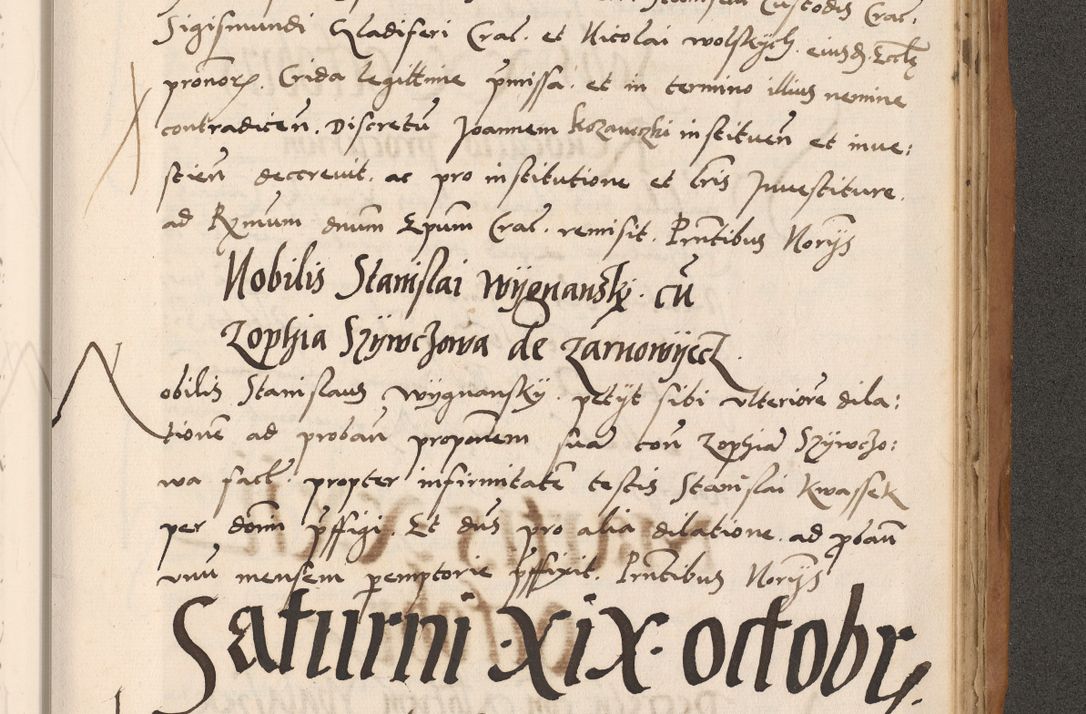 Custodis Crac.
Sigismundi Gladiferi Crac. et Nicolai wolskych. eiusd. Eccle
pronor. Crida legittime pmissa. et in termino illius nemine
contradicen. Discretu Joannem Kozanczki instituen et inue:
stien decreuit. ac pro institutione et lris Inuestiture.
ad Rzmum dnum Epum Crac. remisit. Prntibus Norijs
Nobilis Stanislai wÿgnansky. cu
Zophia Szÿwczowa de zarnowÿecz.
Nobilis Stanislaus wÿgnanskÿ. petÿt sibi vlteriore dila:
tione ad proban proponem sua con Zophia Szÿwczo:
wa fact. propter infirmitate testis Stanislai Kwassek
per domin pffigi. Et dns pro alia dilatione. ad proban
vnu mensem peremptorie pffixit. Prntibus Norijs
Saturni .xix. octobr.